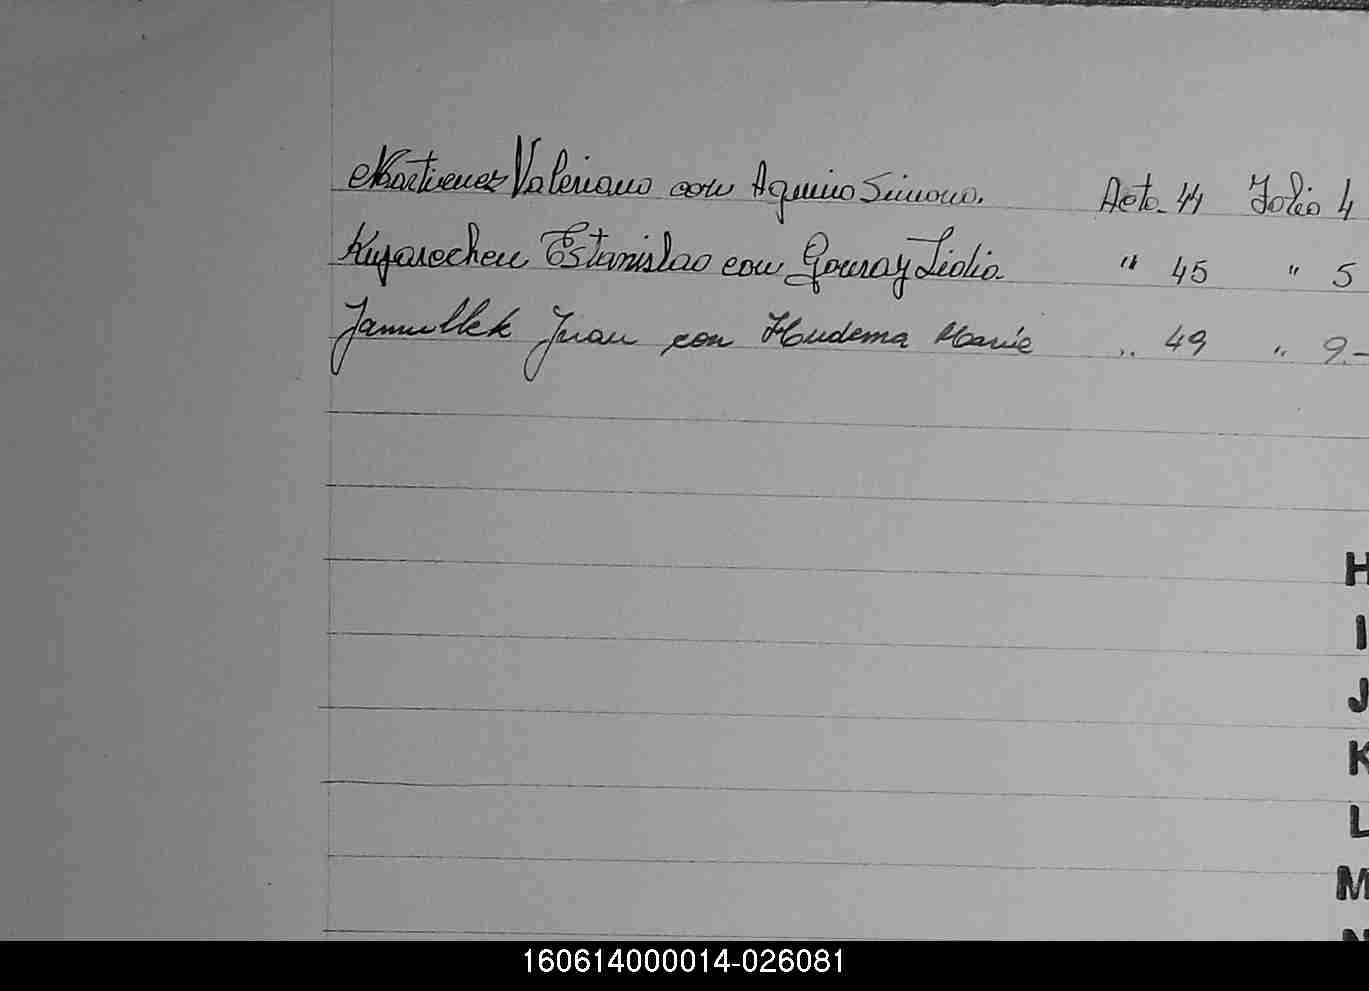 Martinez Valeriano con Aquino Simona. Acta. 44 Folio 4
Estanislao con Lidia. " 45 " 5
Juan con Hudema María " 49 " 9.-
H
I
J
K
L
M
N
160614000014-026081